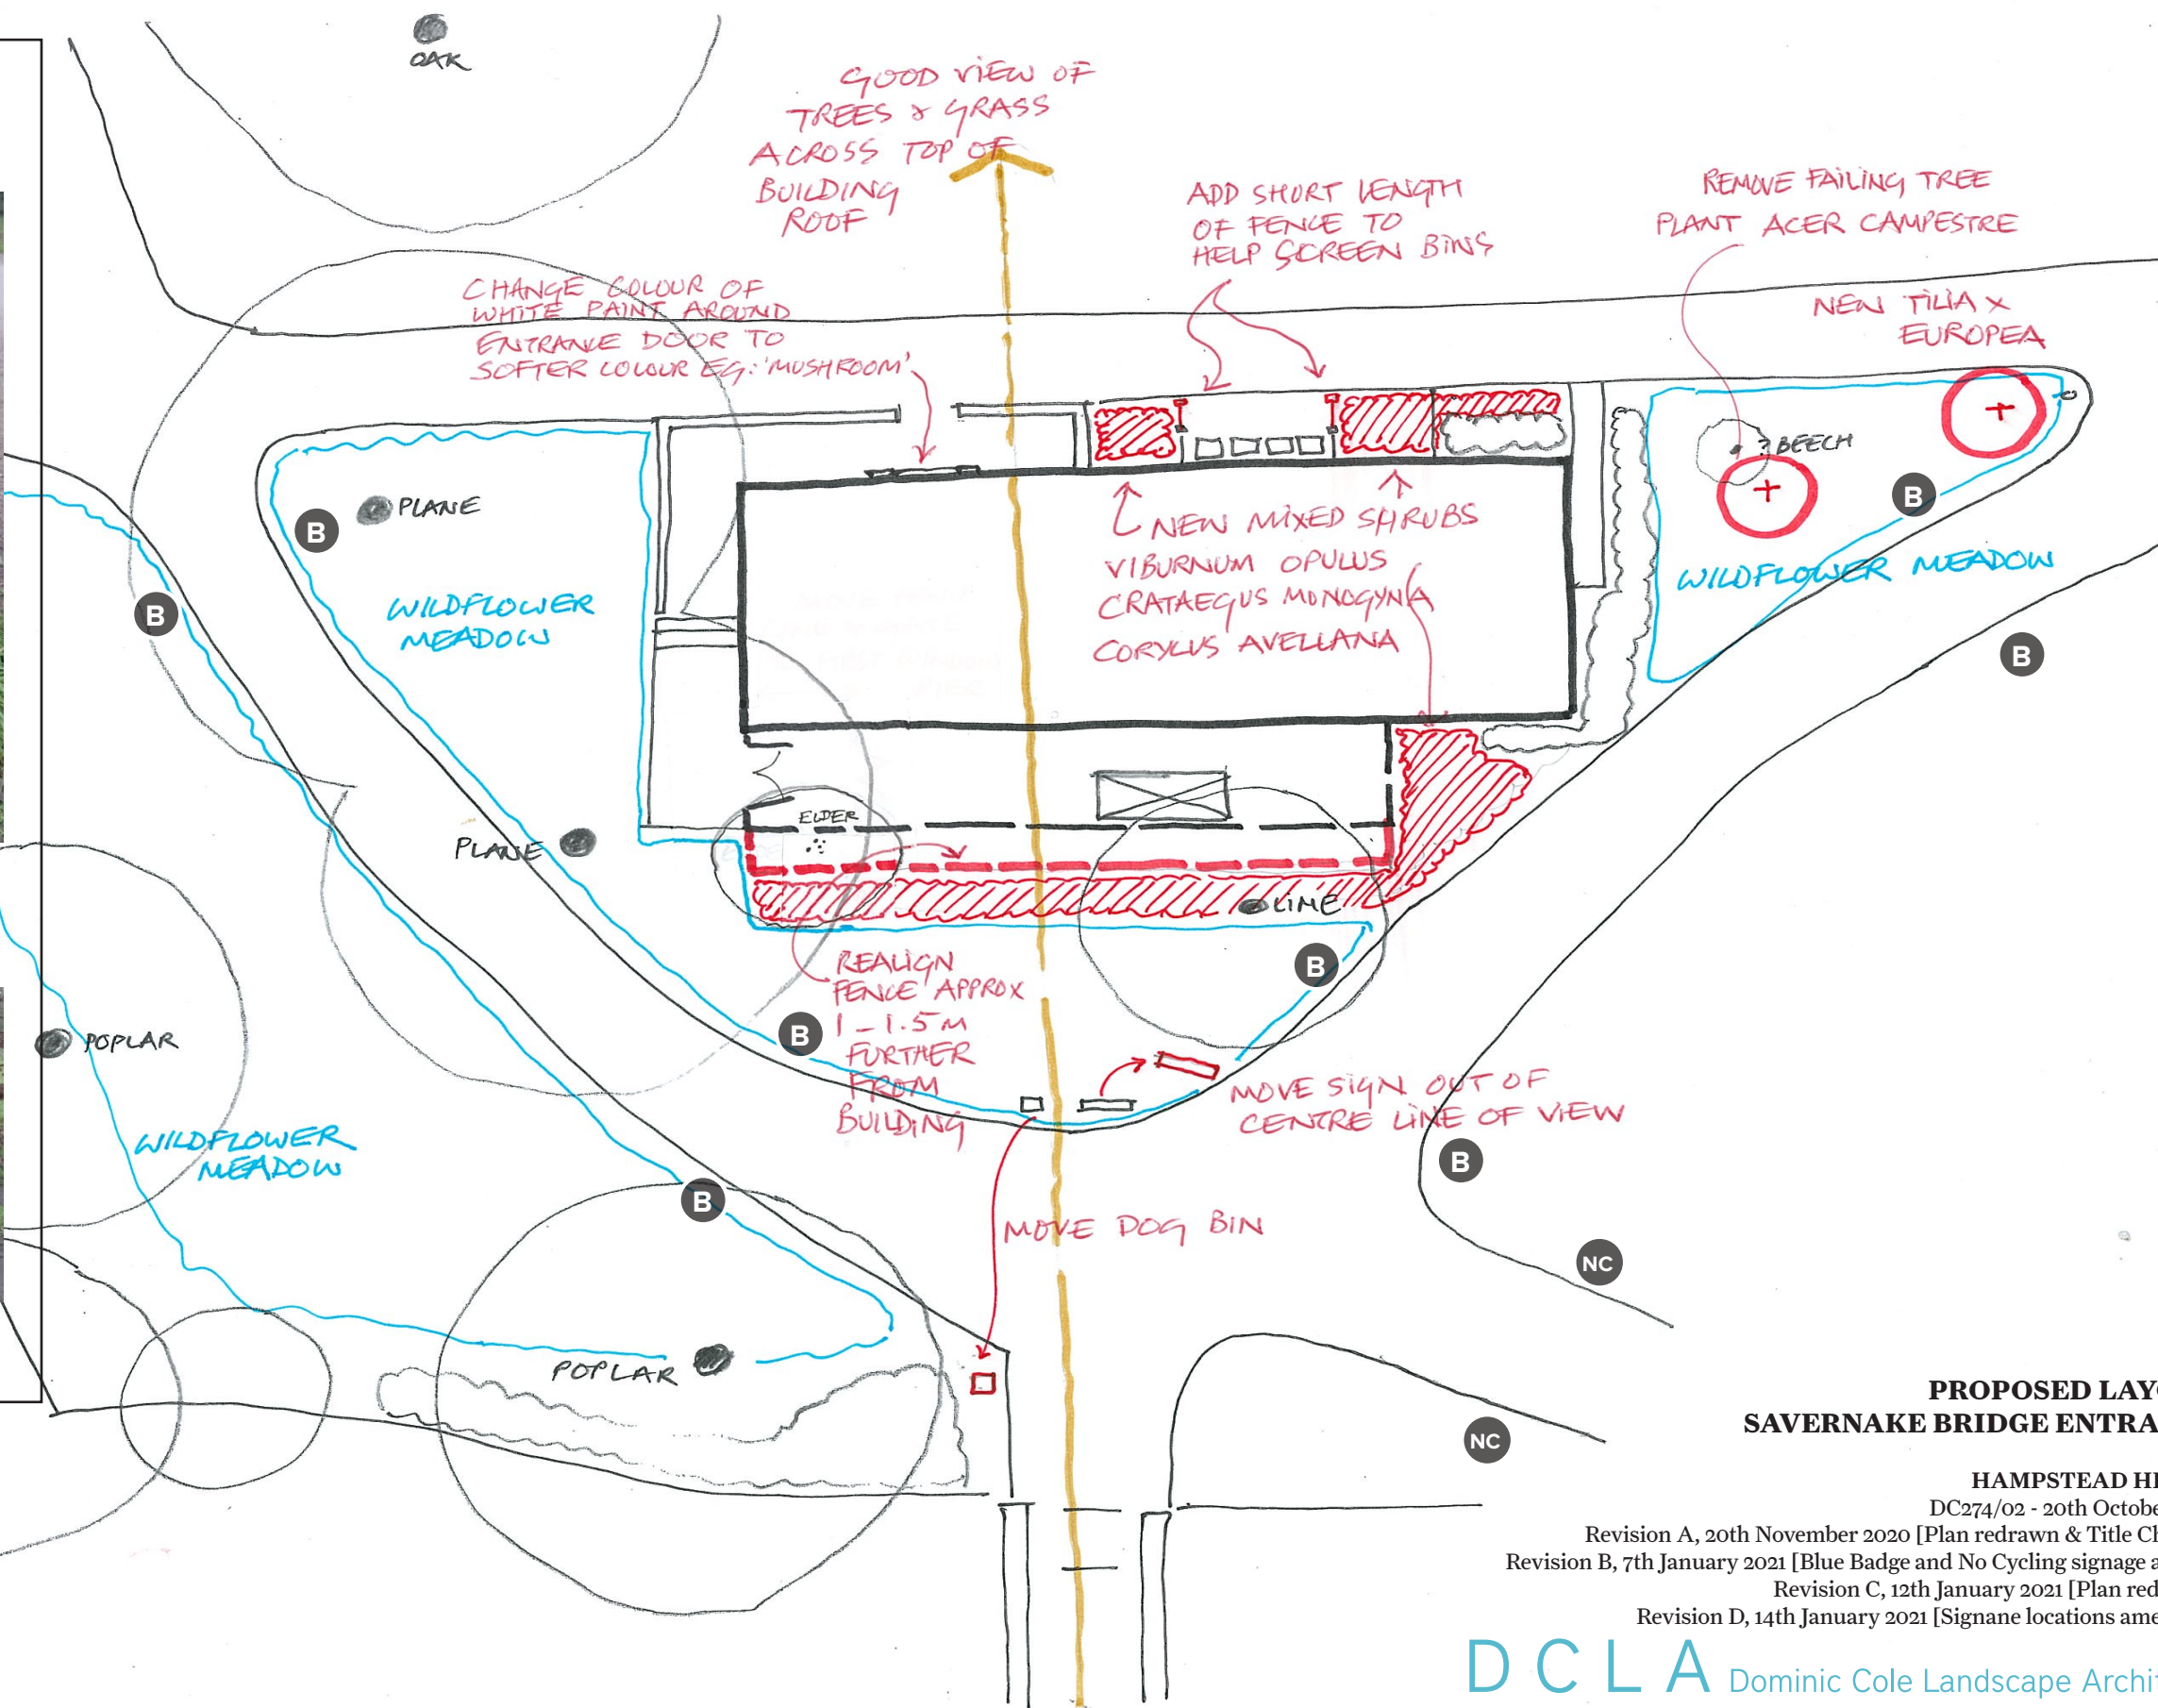 OAK
GOOD VIEW OF
TREES & GRASS
ACROSS TOP OF
BUILDING
ROOF
ADD SHORT LENGTH
OF FENCE TO
HELP SCREEN BINS
REMOVE FAILING TREE
PLANT ACER CAMPESTRE
CHANGE COLOUR OF
WHITE PAINT AROUND
ENTRANCE DOOR TO
SOFTER COLOUR EG: 'MUSHROOM'
NEW TILIA X
EUROPEA
? BEECH
B
PLANE
B
B
WILDFLOWER
MEADOW
NEW MIXED SHRUBS
VIBURNUM OPULUS
CRATAEGUS MONOGYNA
CORYLUS AVELLANA
WILDFLOWER MEADOW
B
B
PLANE
ELDER
LIME
REALIGN
FENCE APPROX
1 - 1.5M
FURTHER
FROM
BUILDING
B
B
POPLAR
MOVE SIGN OUT OF
CENTRE LINE OF VIEW
WILDFLOWER
MEADOW
B
B
MOVE DOG BIN
NC
POPLAR
NC
PROPOSED LAY
SAVERNAKE BRIDGE ENTRA
HAMPSTEAD H
DC274/02 - 20th Octobe
Revision A, 20th November 2020 [Plan redrawn & Title Ch
Revision B, 7th January 2021 [Blue Badge and No Cycling signage a
Revision C, 12th January 2021 [Plan red
Revision D, 14th January 2021 [Signane locations ame
DCLA Dominic Cole Landscape Archi